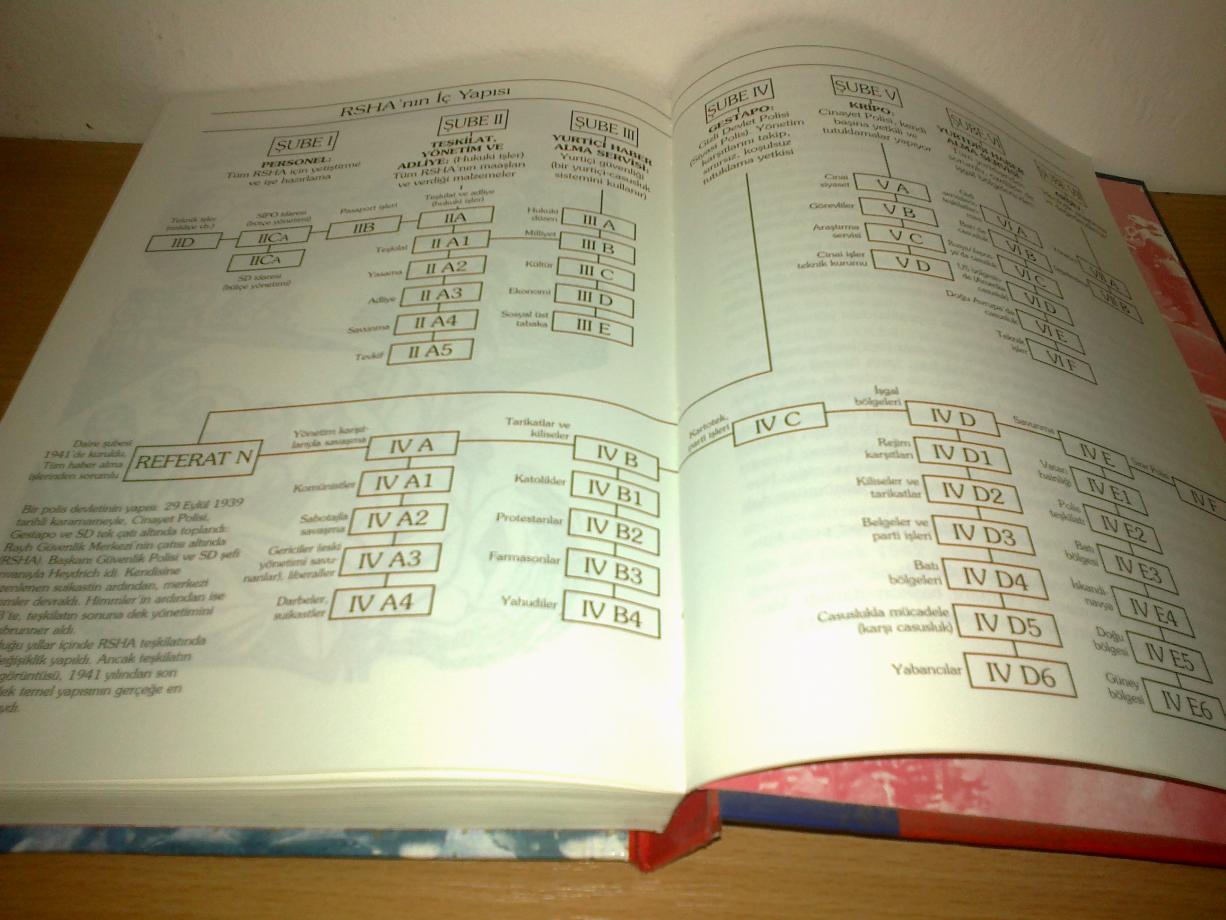 RSHA'nın İç Yapısı
ŞUBE I
PERSONEL:
Tüm RSHA için yetiştirme
ve işe hazırlama
ŞUBE II
TEŞKİLAT,
YÖNETİM VE
ADLİYE: (Hukuki işler)
Tüm RSHA'nın maaşları
ve verdiği malzemeler
ŞUBE III
YURTİÇİ HABER
ALMA SERVİSİ:
Yurtiçi güvenliği
(bir yurtiçi-casusluk
sistemini kullanır)
Teknik işler
IID
SIPO idaresi
(bütçe yönetimi)
IICA
IICA
SD idaresi
(bütçe yönetimi)
Pasaport işleri
IIB
Teşkilat ve adliye
(hukuki işler)
IIA
Teşkilat
II A1
Yasama
II A2
Adliye
II A3
Savunma
II A4
Tevkif
II A5
Hukuki
düzen
III A
Milliyet
III B
Kültür
III C
Ekonomi
III D
Sosyal üst
tabaka
III E
Daire şubesi
1941'de kuruldu.
Tüm haber alma
işlerinden sorumlu
REFERAT N
Yönetim karşıt-
larıyla savaşma
IV A
Komünistler
IV A1
Sabotajla
savaşma
IV A2
Gericiler (eski
yönetimi savu-
nanlar), liberaller
IV A3
Darbeler,
suikastler
IV A4
Tarikatlar ve
kiliseler
IV B
Katolikler
IV B1
Protestanlar
IV B2
Farmasonlar
IV B3
Yahudiler
IV B4
Bir polis devletinin yapısı: 29 Eylül 1939
tarihli kararnameyle, Cinayet Polisi,
Gestapo ve SD tek çatı altında toplandı:
Rayh Güvenlik Merkezi'nin çatısı altında
(RSHA). Başkanı Güvenlik Polisi ve SD şefi
nvanıyla Heydrich idi. Kendisine
zenlenen suikastin ardından, merkezi
mmler devraldı. Himmler'in ardından ise
3'te, teşkilatın sonuna dek yönetimini
nbrunner aldı.
duğu yıllar içinde RSHA teşkilatında
eğişiklik yapıldı. Ancak teşkilatın
görüntüsü, 1941 yılından son
dek temel yapısının gerçeğe en
ydı.
ŞUBE IV
GESTAPO:
Gizli Devlet Polisi
(Siyasi Polis). Yönetim
karşıtlarını takip,
sınırsız, koşulsuz
tutuklama yetkisi
ŞUBE V
KRIPO:
Cinayet Polisi, kendi
başına yetkili ve
tutuklamalar yapıyor
Cinai
siyaset
V A
Görevliler
V B
Araştırma
servisi
V C
Cinai işler
teknik kurumu
V D
ŞUBE VI
YURTDIŞI HABER
ALMA SERVİSİ:
VI A
Batı'da
casusluk
VI B
VI C
VI D
Doğu Avrupa'da
casusluk
VI E
Teknik
işler
VI F
VII A
VII B
Kartotek,
parti işleri
IV C
İşgal
bölgeleri
IV D
Rejim
karşıtları
IV D1
Kiliseler ve
tarikatlar
IV D2
Belgeler ve
parti işleri
IV D3
Batı
bölgeleri
IV D4
Casuslukla mücadele
(karşı casusluk)
IV D5
Yabancılar
IV D6
Savunma
IV E
Vatan
hainliği
IV E1
Polis
teşkilatı
IV E2
Batı
bölgesi
IV E3
İskandi-
navya
IV E4
Doğu
bölgesi
IV E5
Güney
bölgesi
IV E6
Sınır Polisi
IV F